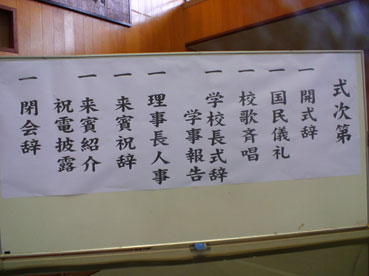 式次第
一 開式辞
一 国民儀礼
一 校歌斉唱
一 学校長式辞
学事報告
一 理事長人事
一 来賓祝辞
一 来賓紹介
祝電披露
一 閉会辞